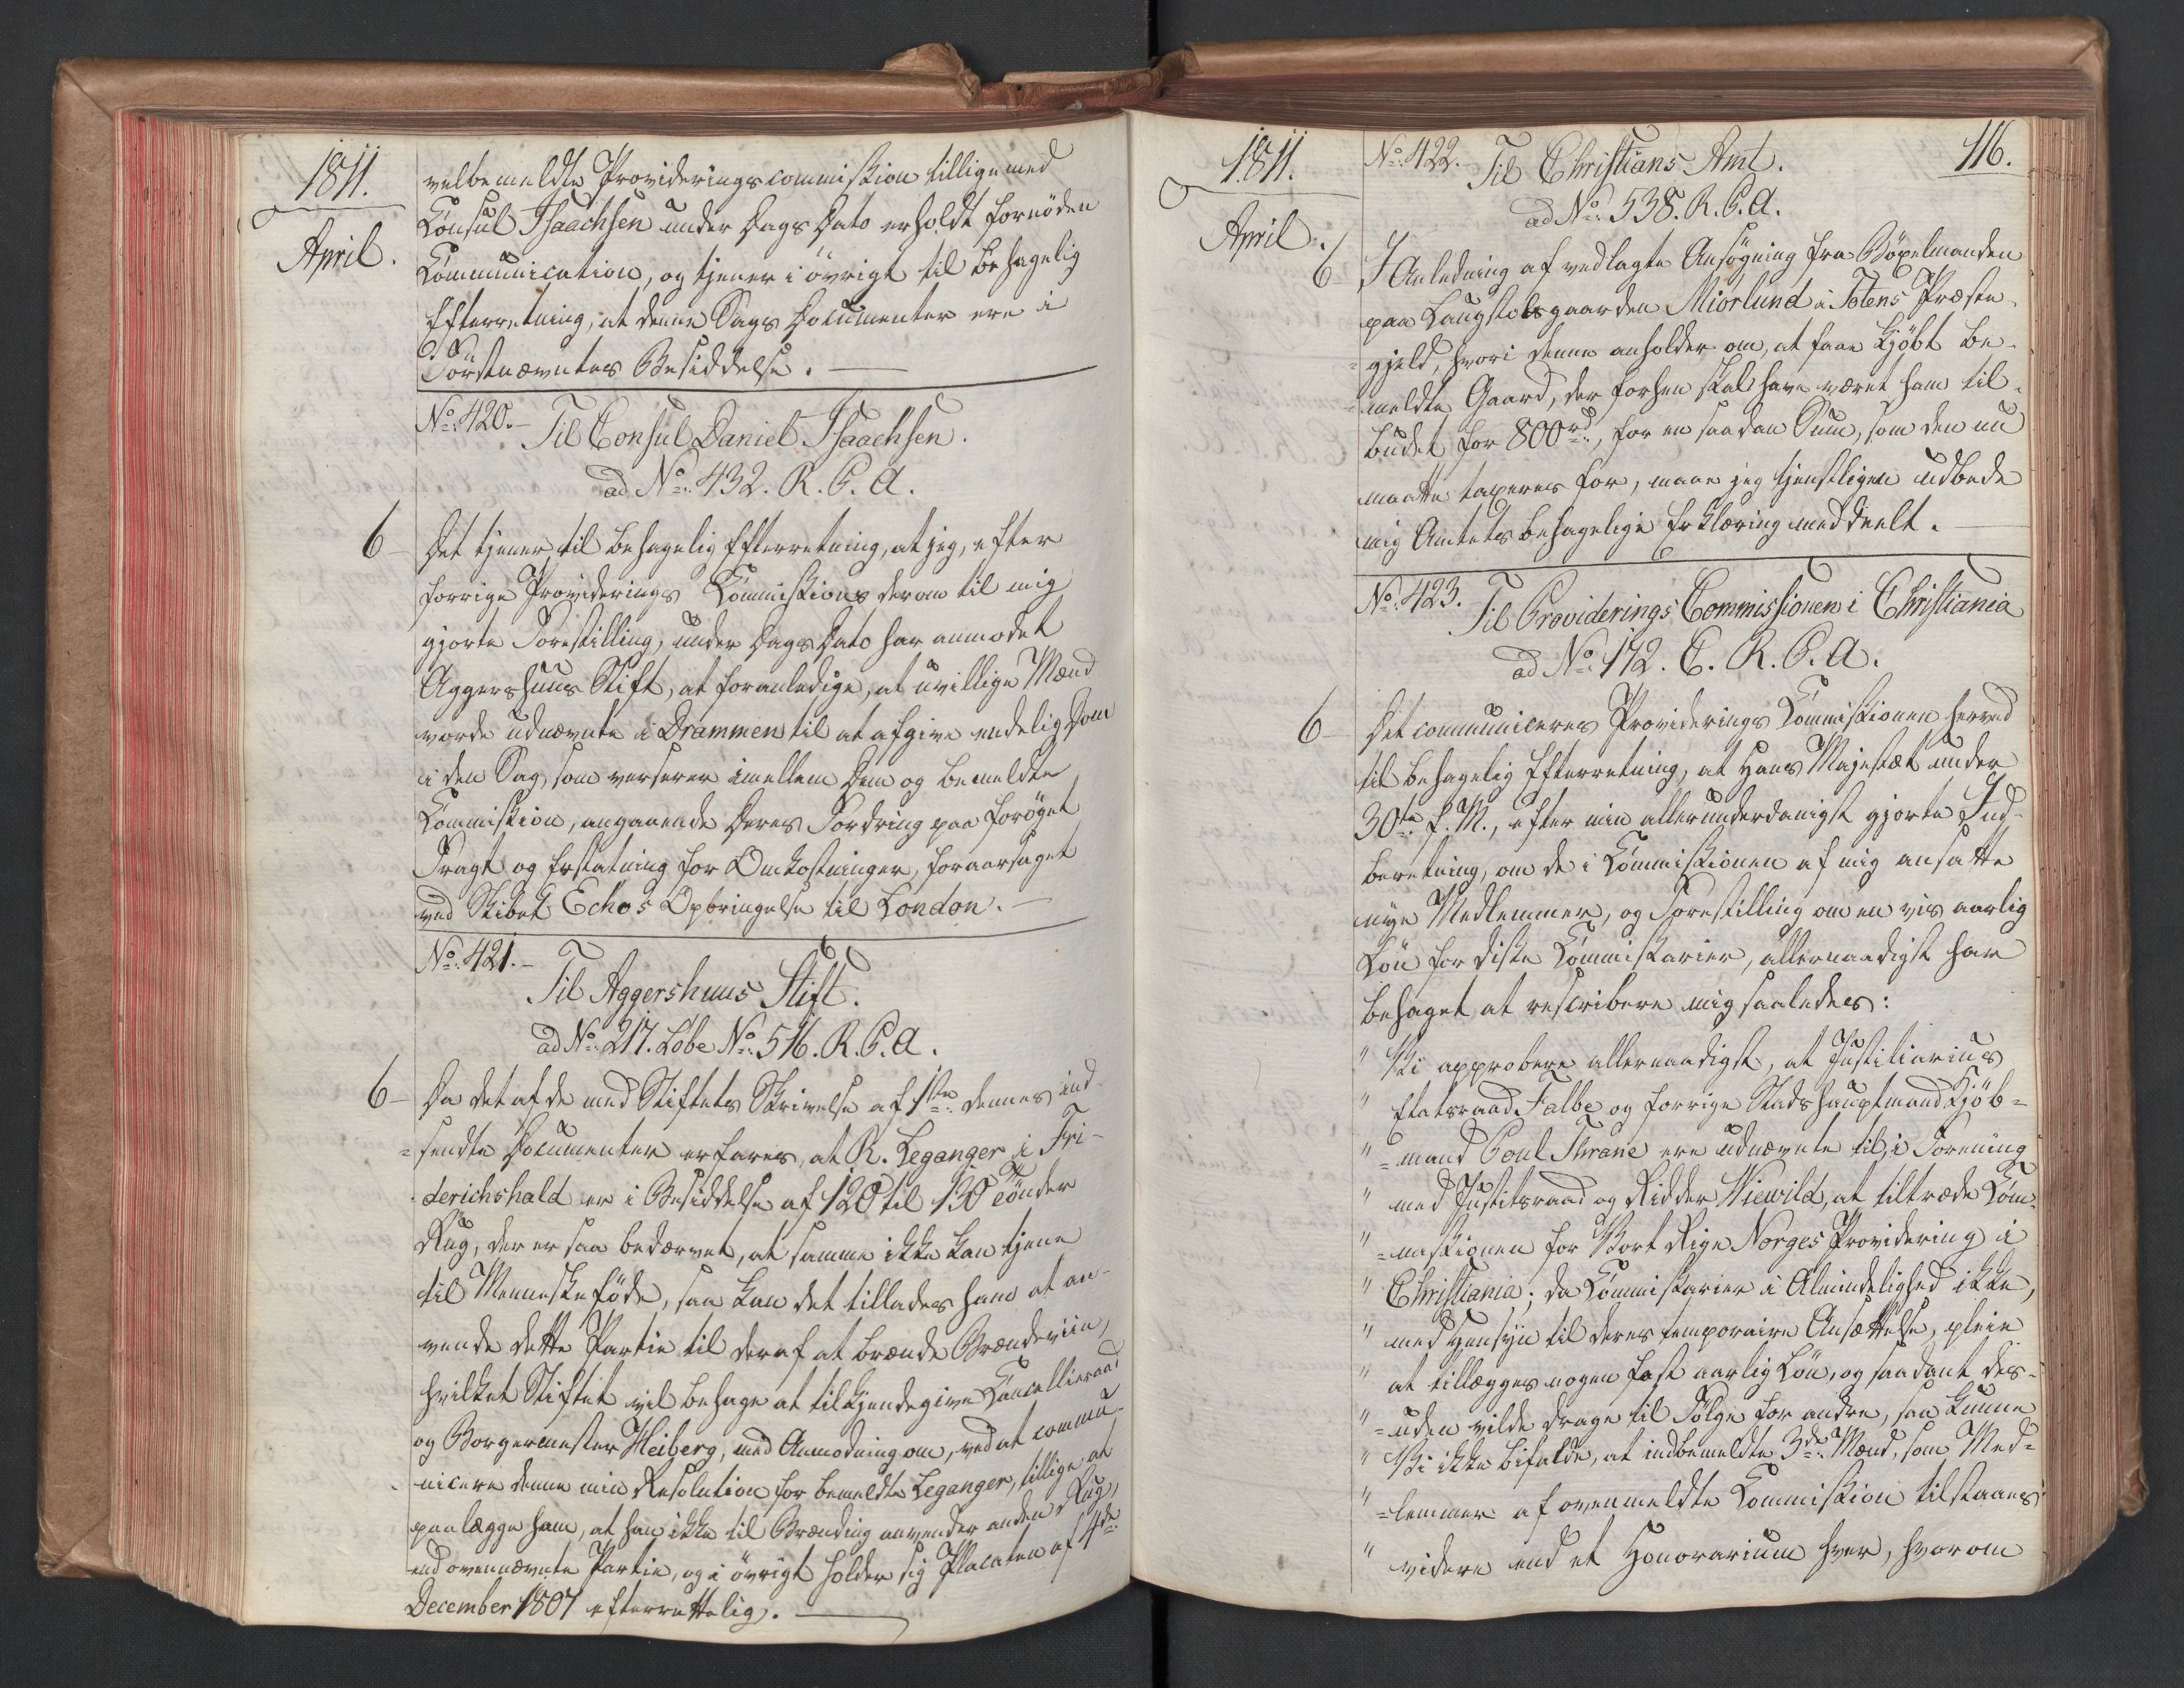 1811.
April.
velbemeldte Provideringscommission tilligemed
Konsul Isaachsen under Dags Dato erholdt fornöden
Communication, og tjener i övrigt til behagelig
Efterretning, at denne Sags Documenter ere i
Förstnævntes Besiddelse.
No. 420.
Til Consul Daniel Isaachsen.
ad No. 432. R. P. A.
6 Det tjener til behagelig Efterretning, at jeg, efter
forrige Providerings Kommissions derom til mig
gjorte Forestilling, under Dags Dato har anmodet
Aggershuus Stift, at foranledige, at uvillige Mænd
vorde udnævnte i Drammen til at afgive endelig Dom
i den Sag, som verserer imellem Dem og bemeldte
Kommission, angaaende Deres Fordring paa forøget
Fragt og Erstatning for Omkostninger, foraarsaget
ved Skibet Echos Opbringelse til London.
No. 421.
Til Aggershuus Stift.
ad No. 217. Løbe No. 516. R. P. A.
6 Da det af de med Stiftets Skrivelse af 1ste dennes ind-
=sendte Documenter erfares, at R. Leganger i Fri-
derichshald er i Besiddelse af 120 til 130 Tønder
Rug, der er saa bedærvet, at samme ikke kan tjene
til Menneskeföde, saa kan det tillades ham at an-
vende dette Partie til deraf at brænde Brændeviin,
hvilket Stiftet vil behage at tilkjendegive Cancellieraad
og Borgermester Heiberg, med Anmodning om, ved at commu-
nicere denne min Resolution for bemeldte Leganger, tillige at
paalægge ham, at han ikke til Brænding anvender anden Rug,
end ovennævnte Partie, og i övrigt holder sig Placaten af 4de
December 1807 efterrettelig.
1811.
April.
116.
No. 422.
Til Christians Amt.
ad No. 538. R. P. A.
6 I Anledning af vedlagte Ansögning fra Böxelmanden
paa Laugstolsgaarden Miörlund i Totens Præste-
=gjeld, hvori denne anholder om, at faae kjöbt be-
=meldte Gaard, der forhen skal have været ham til-
budet for 800rd., for en saadan Sum, som den nu
maatte taxeres for, maae jeg tjenstligen udbede
mig Amtets behagelige Erklæring meddeelt.
No. 423.
Til Providerings Commissionen i Christiania
ad No. 172. C. R. P. A.
6 Det communiceres Providerings Kommissionen herved
til behagelig Efterretning, at Hans Majestæt under
30te f. M., efter min allerunderdanigst gjorte Ind-
beretning, om de i Kommissionen af mig ansatte
nye Medlemmer, og Forestilling om en vis aarlig
Lön for disse Kommissarier, allernaadigst har
behaget at rescribere mig saaledes:
" Vi approbere allernaadigst, at Justitiarius
" Etatsraad Falbe og forrige Stadshauptmand Kjöb-
" =mand Poul Thrane ere udnævnte til, i Forening
" med Justitsraad og Ridder Wiewild, at tiltræde Kom-
" =missionen for Vort Rige Norges Providering i
" Christiania; da Kommissarier i Almindelighed ikke,
" med Hensyn til deres temporaire Ansættelse, pleie
" at tillægges nogen fast aarlig Lön, og saadant des-
" =uden vilde drage til Fölge for andre, saa kunne
" Vi ikke bifalde, at indbemeldte 3de Mænd, som Med-
" =lemmer af ovenmeldte Kommission tilstaaes
" videre end et Honorarium hver, hvorom